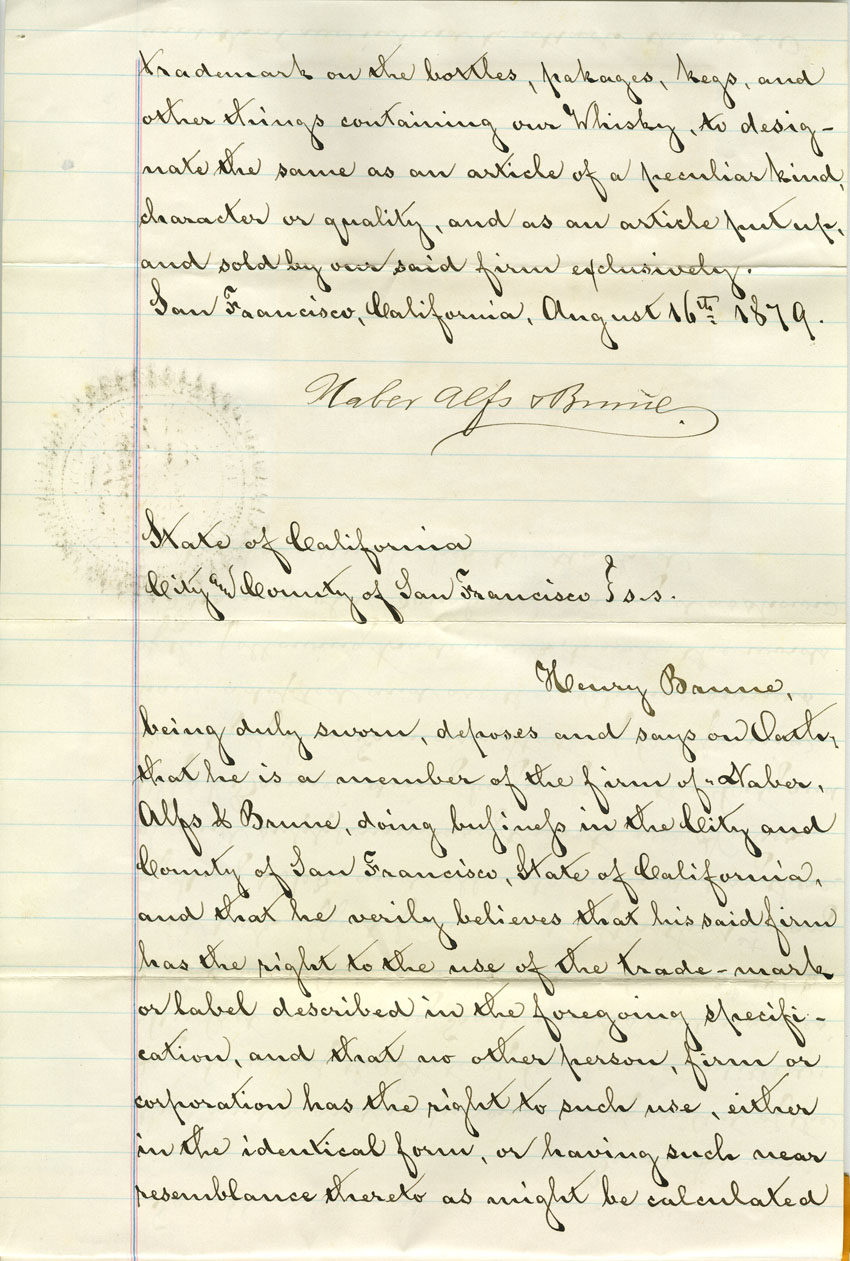 trademark on the bottles, pakages, kegs, and
other things containing our Whisky, to desig-
nate the same as an article of a peculiar kind,
character or quality, and as an article put up,
and sold by our said firm exclusively.
San Francisco, California, August 16th 1879.
Naber Alfs & Brune.
State of California
City and County of San Francisco } s.s.
Henry Brune,
being duly sworn, deposes and says on Oath,
that he is a member of the firm of Naber,
Alfs & Brune, doing business in the City and
County of San Francisco, State of California,
and that he verily believes that his said firm
has the right to the use of the trade-mark
or label described in the foregoing specifi-
cation, and that no other person, firm or
corporation has the right to such use, either
in the identical form, or having such near
resemblance thereto as might be calculated